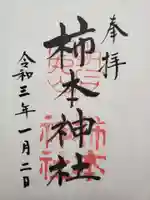 奉拝
柿本神社
令和三年一月二日